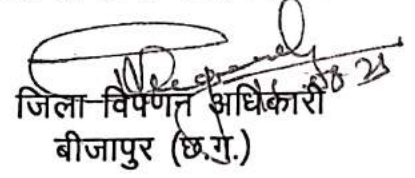 जिला विपणन अधिकारी
बीजापुर (छ.ग.)